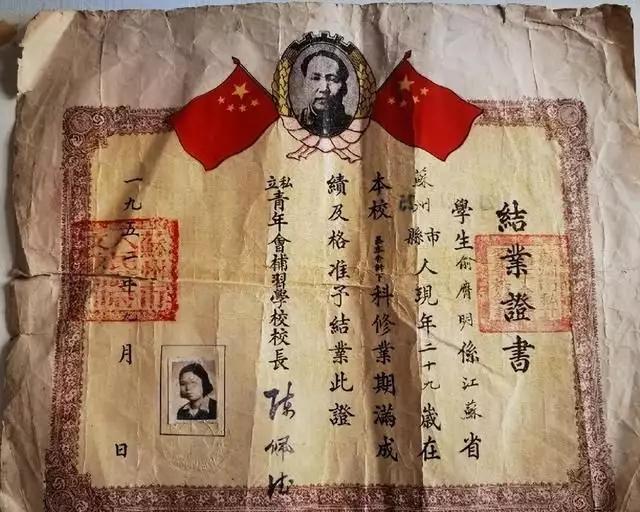 結業證書
學生俞明係江蘇省
蘇州市縣人現年二十九歲在
本校會計科修業期滿成
績及格准予結業此證
私立青年會補習學校校長 陳佩
一九五年 月 日